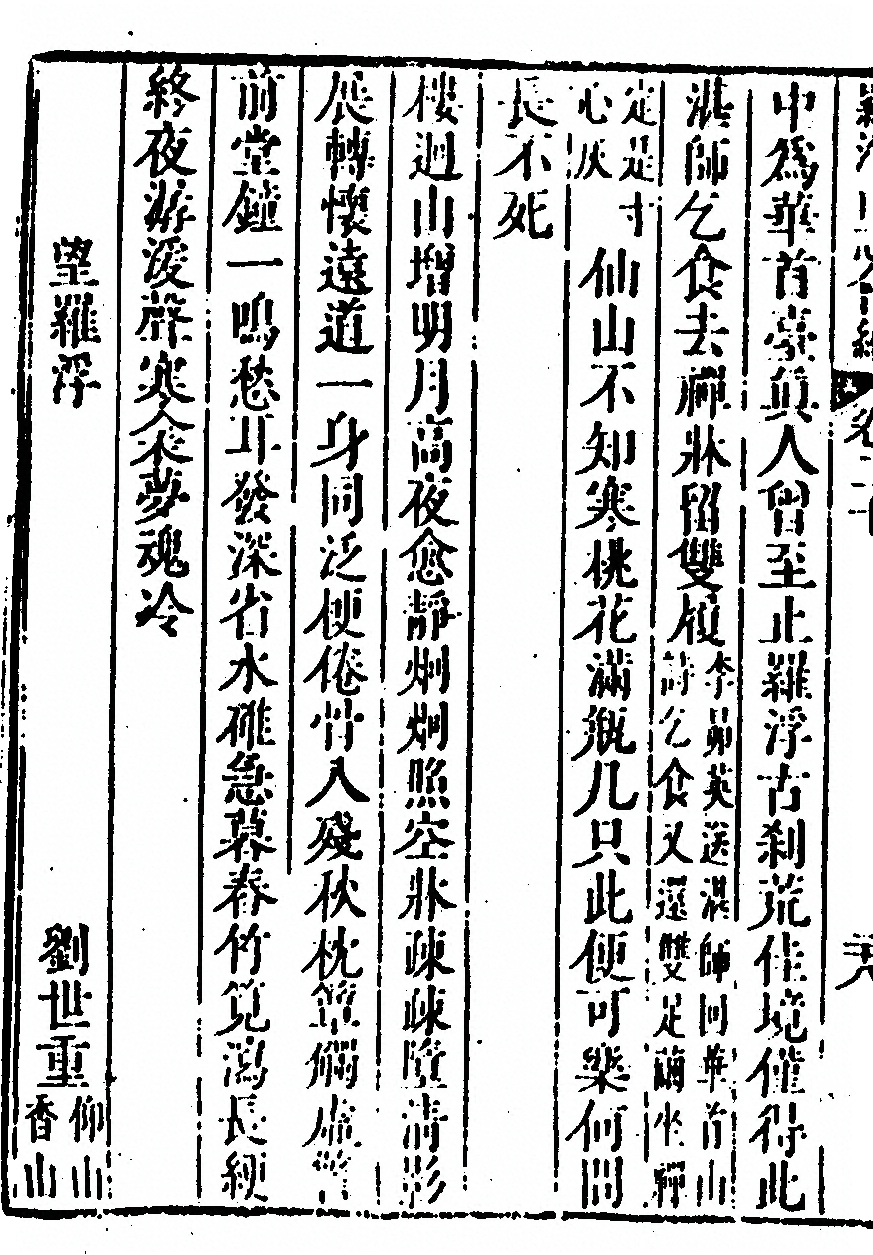 中為華首臺真人曾至止羅浮古刹荒佳境僅得此
湛師乞食去禪牀留雙履李昴英送湛師回華首山詩乞食又還雙足繭坐禪
定是寸心灰仙山不知寒桃花滿瓶几只此便可樂何問
長不死
樓迥山增明月高夜愈靜炯炯照空牀疎疎墮清影
展轉懷遠道一身同泛梗倦骨入殘秋枕簟觸虛警
前堂鐘一鳴愁耳發深省水碓急暮舂竹筧瀉長綆
終夜潺湲聲寒衾夢魂冷
望羅浮 劉世重仰山香山